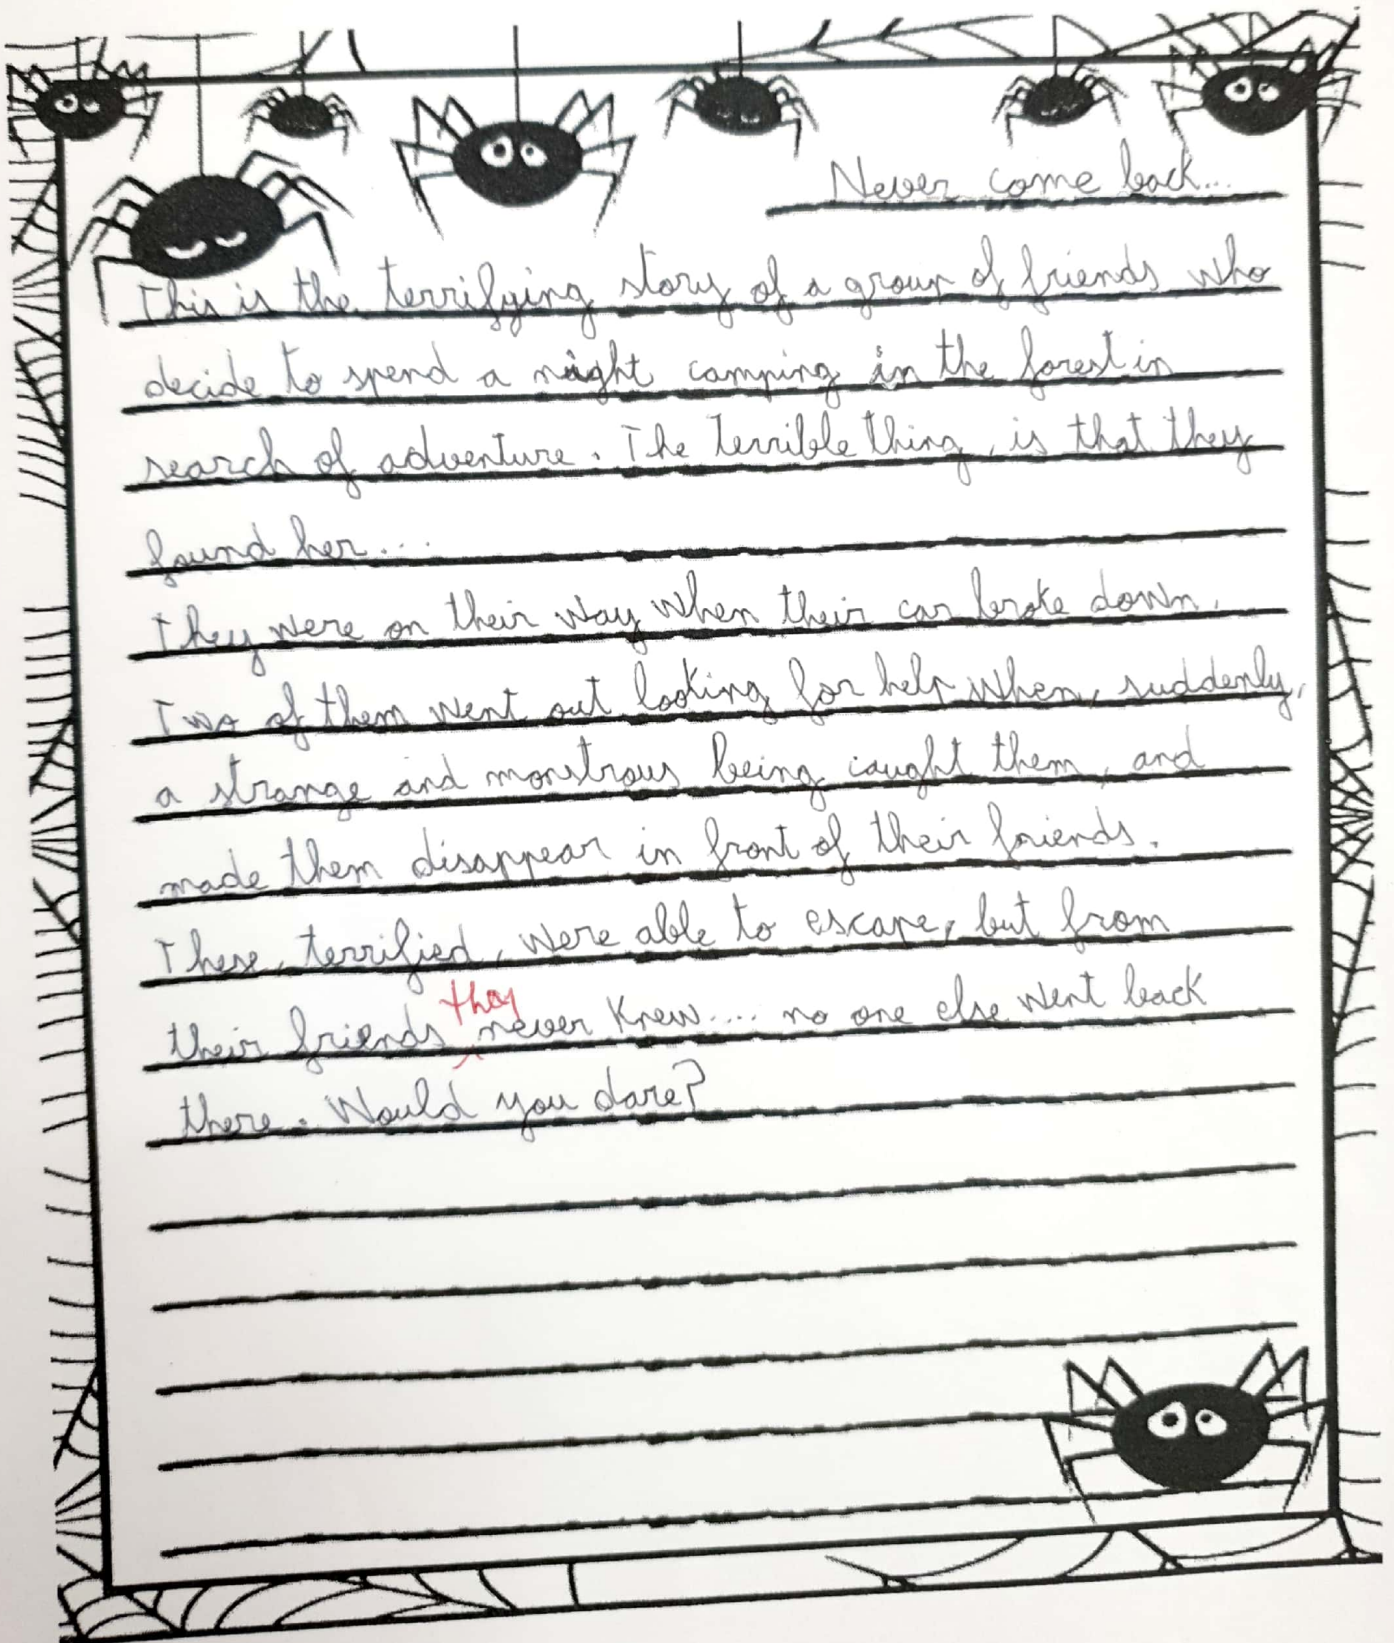 Never come back...
This is the terrifying story of a group of friends who
decide to spend a night camping in the forest in
search of adventure. The terrible thing, is that they
found her...
They were on their way when their car broke down.
Two of them went out looking for help when, suddenly,
a strange and monstrous being caught them, and
made them disappear in front of their friends.
These, terrified, were able to escape, but from
they
their friends never knew.... no one else went back
there. Would you dare?